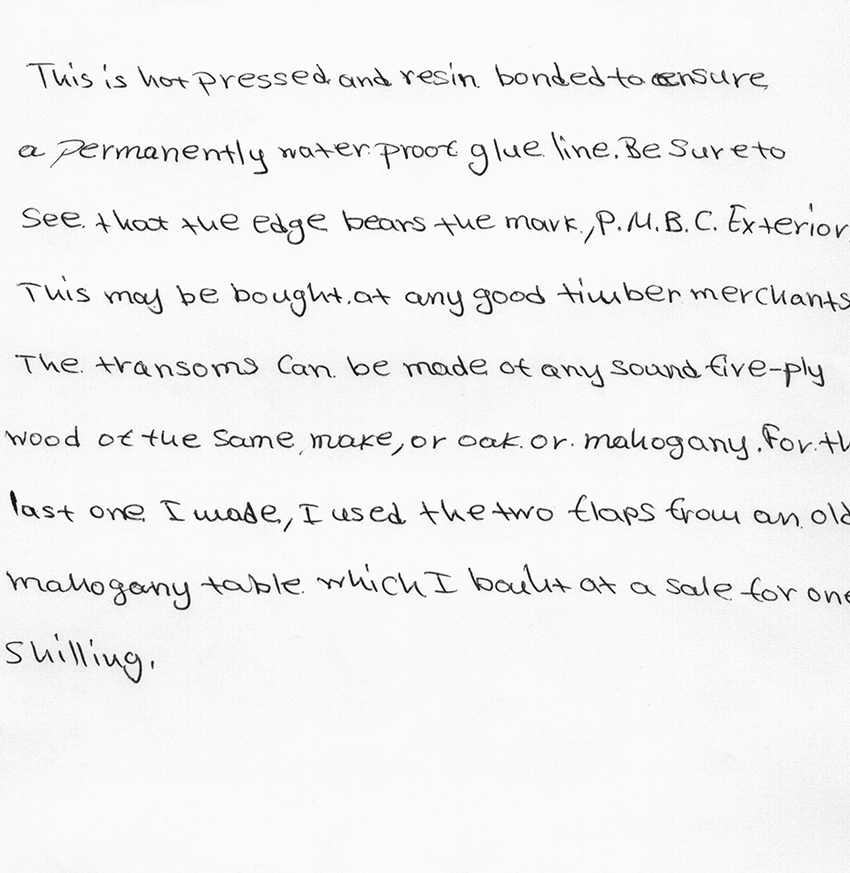 This is hot pressed and resin bonded to ensure
a permanently water proof glue line. Be sure to
see that the edge bears the mark, P.M.B.C. Exterior
This may be bought at any good timber merchants
The transoms can be made of any sound five-ply
wood of the same make, or oak or mahogany. For th
last one I made, I used the two flaps from an old
mahogany table which I bouht at a sale for one
shilling.